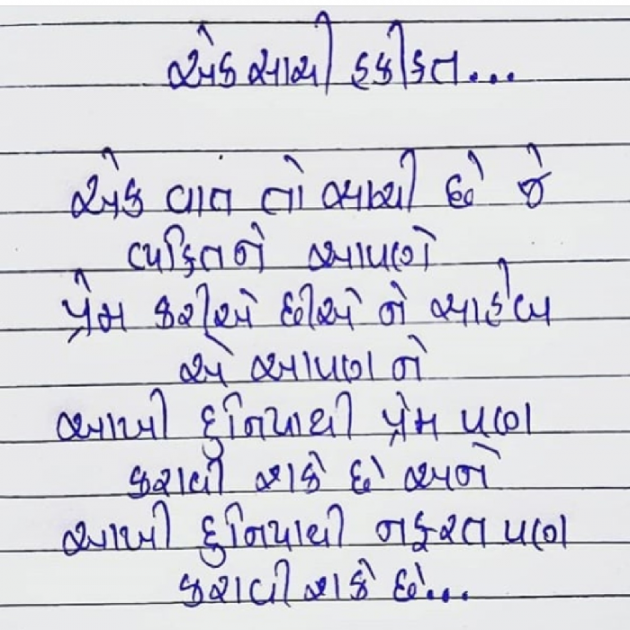 એક સાચી હકીકત...
એક વાત તો સાચી છે જે
વ્યક્તિને આપણે
પ્રેમ કરીએ છીએ ને સાહેબ
એ આપણને
આખી દુનિયાથી પ્રેમ પણ
કરાવી શકે છે અને
આખી દુનિયાથી નફરત પણ
કરાવી શકે છે...